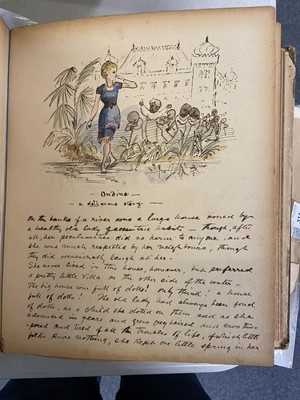 Ondine
— a dolorous story —
On the banks of a river was a large house owned by
a wealthy old lady of eccentric habits — though, after
all, her peculiarities did no harm to anyone, and
she was much respected by her neighbours, though
they did occasionally laugh at her.
She never lived in this house, however, but preferred
a pretty little villa on the other side of the water.
The big house was full of dolls! only think! a house
full of dolls! The old lady had always been fond
of dolls; as a child she doted on them and as she
advanced in years and grew grey haired and
and tired full of the troubles of life, of which little
folks know nothing, she kept one little spring in her